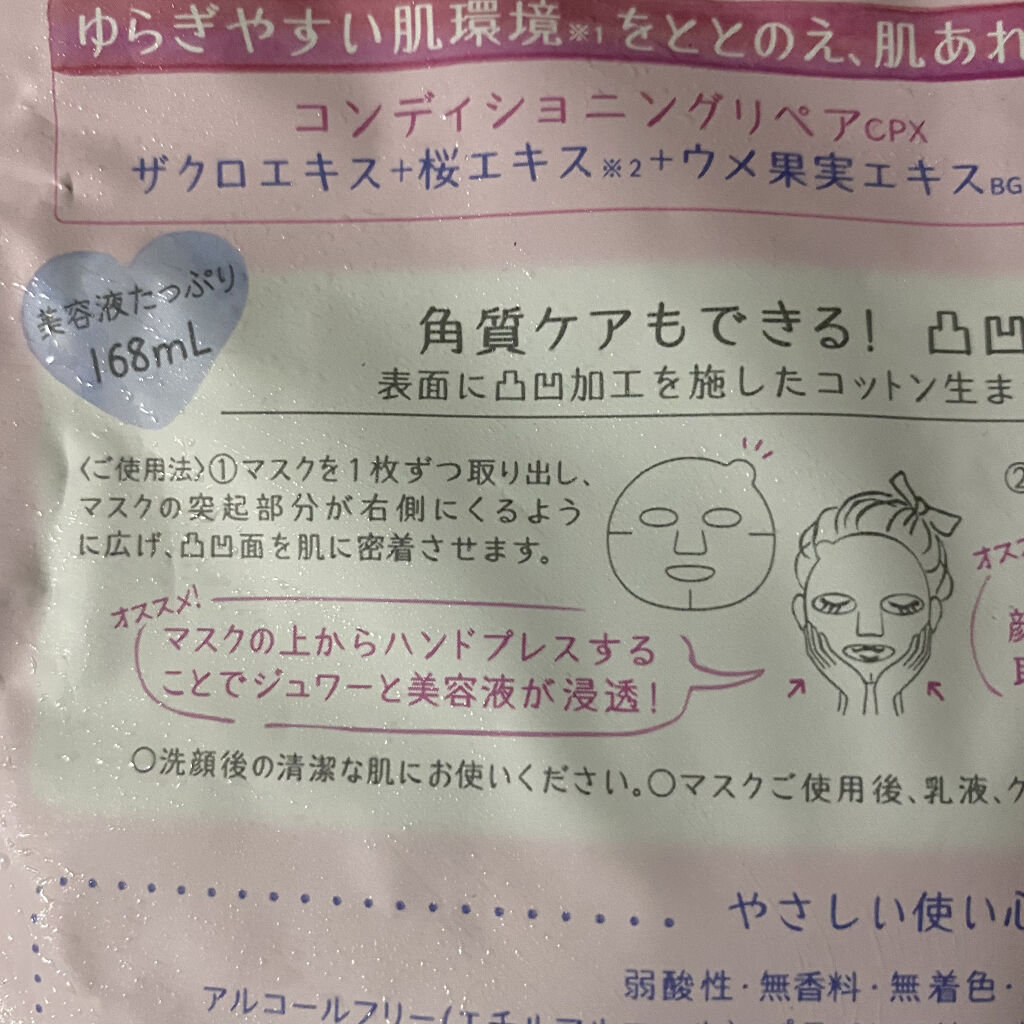 ゆらぎやすい肌環境※1をととのえ、肌あれ
コンディショニングリペアCPX
ザクロエキス+桜エキス※2+ウメ果実エキスBG
美容液たっぷり
168mL
角質ケアもできる! 凸凹
表面に凸凹加工を施したコットン生ま
〈ご使用法〉①マスクを1枚ずつ取り出し、
マスクの突起部分が右側にくるよう
に広げ、凸凹面を肌に密着させます。
オススメ!
マスクの上からハンドプレスする
ことでジュワーと美容液が浸透!
②
オスス
顔
○洗顔後の清潔な肌にお使いください。○マスクご使用後、乳液、ク
やさしい使い心
弱酸性・無香料・無着色・
アルコールフリー(エチルアルコール)